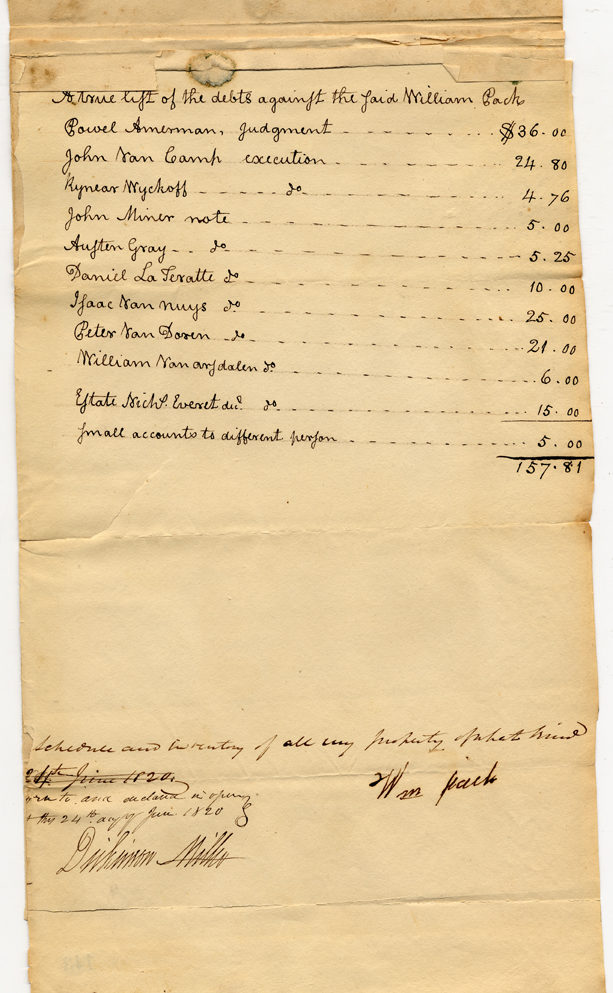 A true list of the debts against the said William Pack
Powel Amerman, judgment $36.00
John Van Camp execution 24.80
Rynear Wyckoff do 4.76
John Miner note 5.00
Austen Gray do 5.25
Daniel La Teratte do 10.00
Isaac Van nuys do 25.00
Peter Van Doren do 21.00
William Vanarsdalen do 6.00
Estate Nichs. Everet decd. do 15.00
Small accounts to different person 5.00
157.81
schedule and inventory of all my property of what kind
24th June 1820
Wm pack
to and declared in open
the 24th day of June 1820
Dickinson Miller